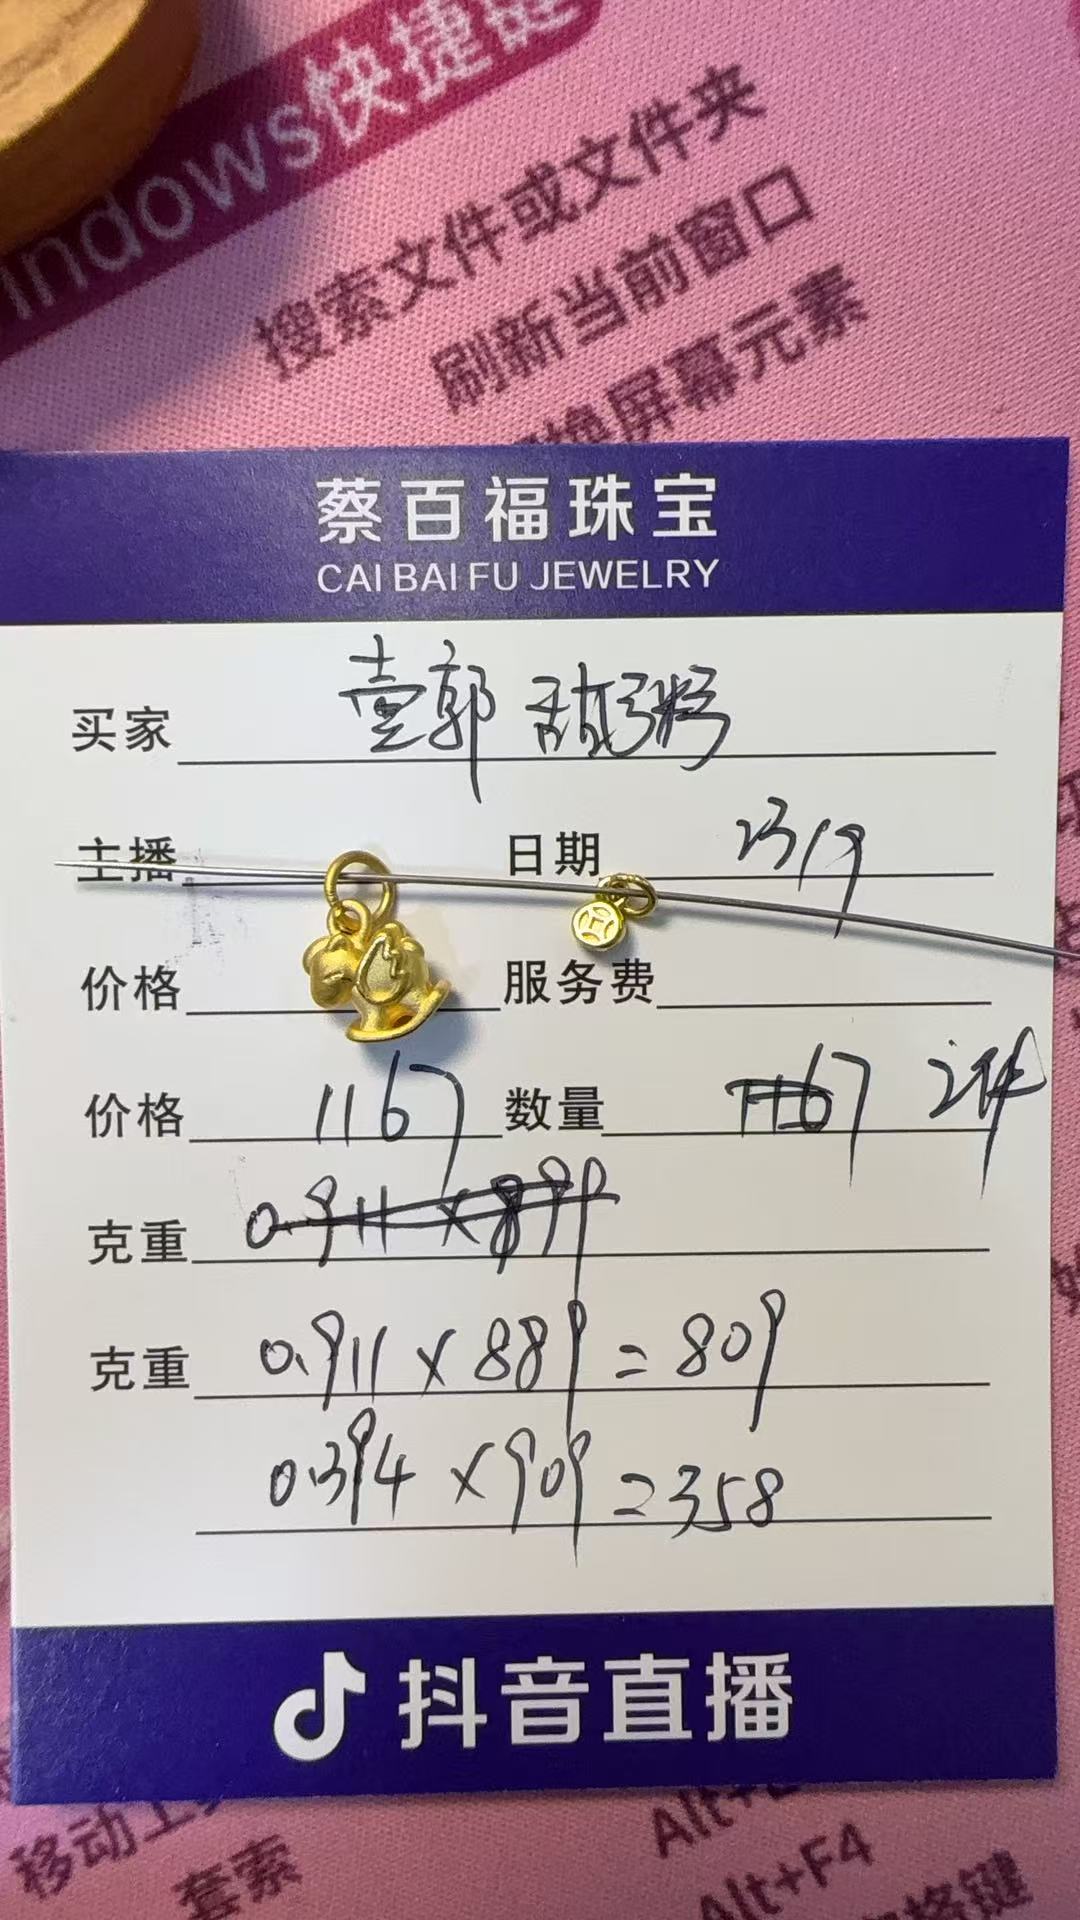 indows快捷键
搜索文件或文件夹
刷新当前窗口
换屏幕元素
蔡百福珠宝
CAI BAI FU JEWELRY
买家 壹郭 甜粥
主播 日期
价格 服务费
价格 1167 数量 1167 2件
克重 0.911 x 899
克重 0.911 x 889 = 809
0.394 x 909 = 358
抖音直播
移动上
套索
Alt+
Alt+F4
格键